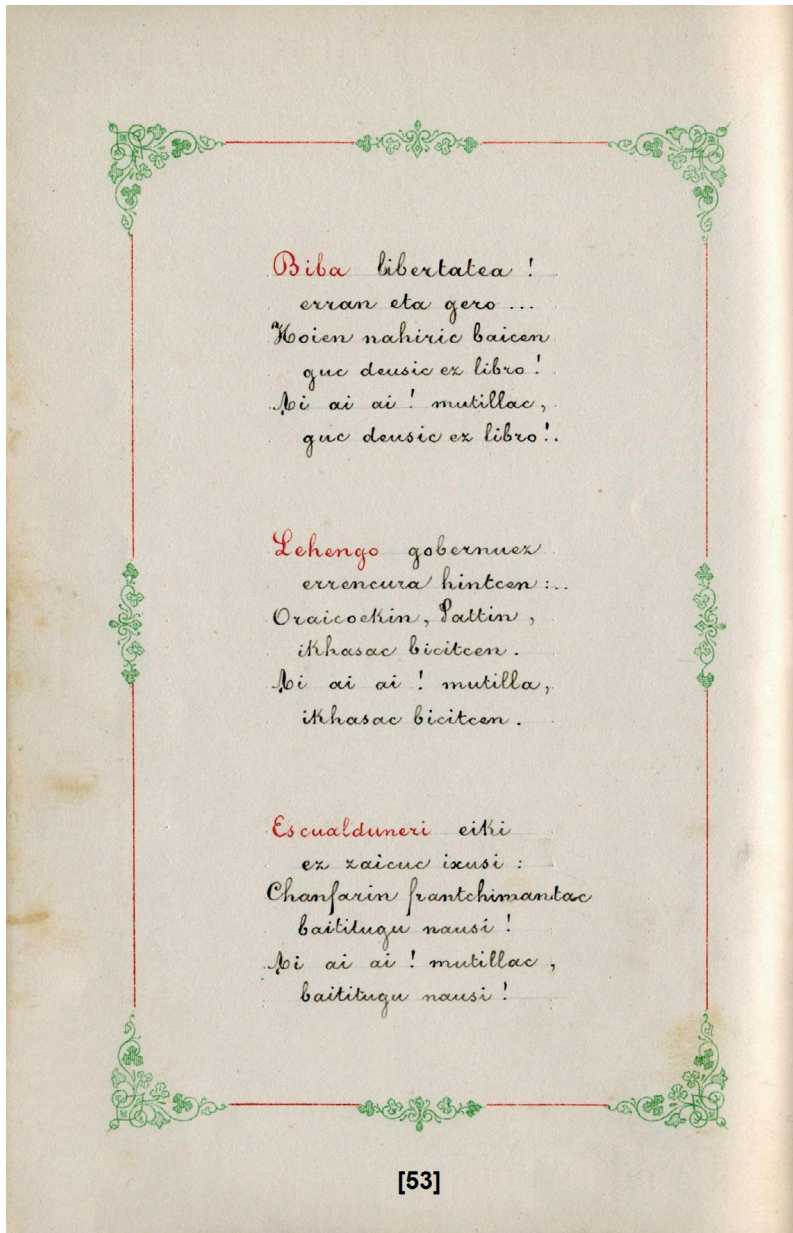 Biba libertatea !
erran eta gero ...
Hoien nahiric baicen
guc deusic ez libro !
Ai ai ai ! mutillac,
guc deusic ez libro !.
Lehengo gobernuez
errencura hintcen :..
Oraicoekin, Pattin,
ikhasac bicitcen.
Ai ai ai ! mutilla,
ikhasac bicitcen.
Escualduneri eiki
ez zaicuc ixusi :
Chanfarin frantchimantac
baititugu nausi !
Ai ai ai ! mutillac,
baititugu nausi !
[53]